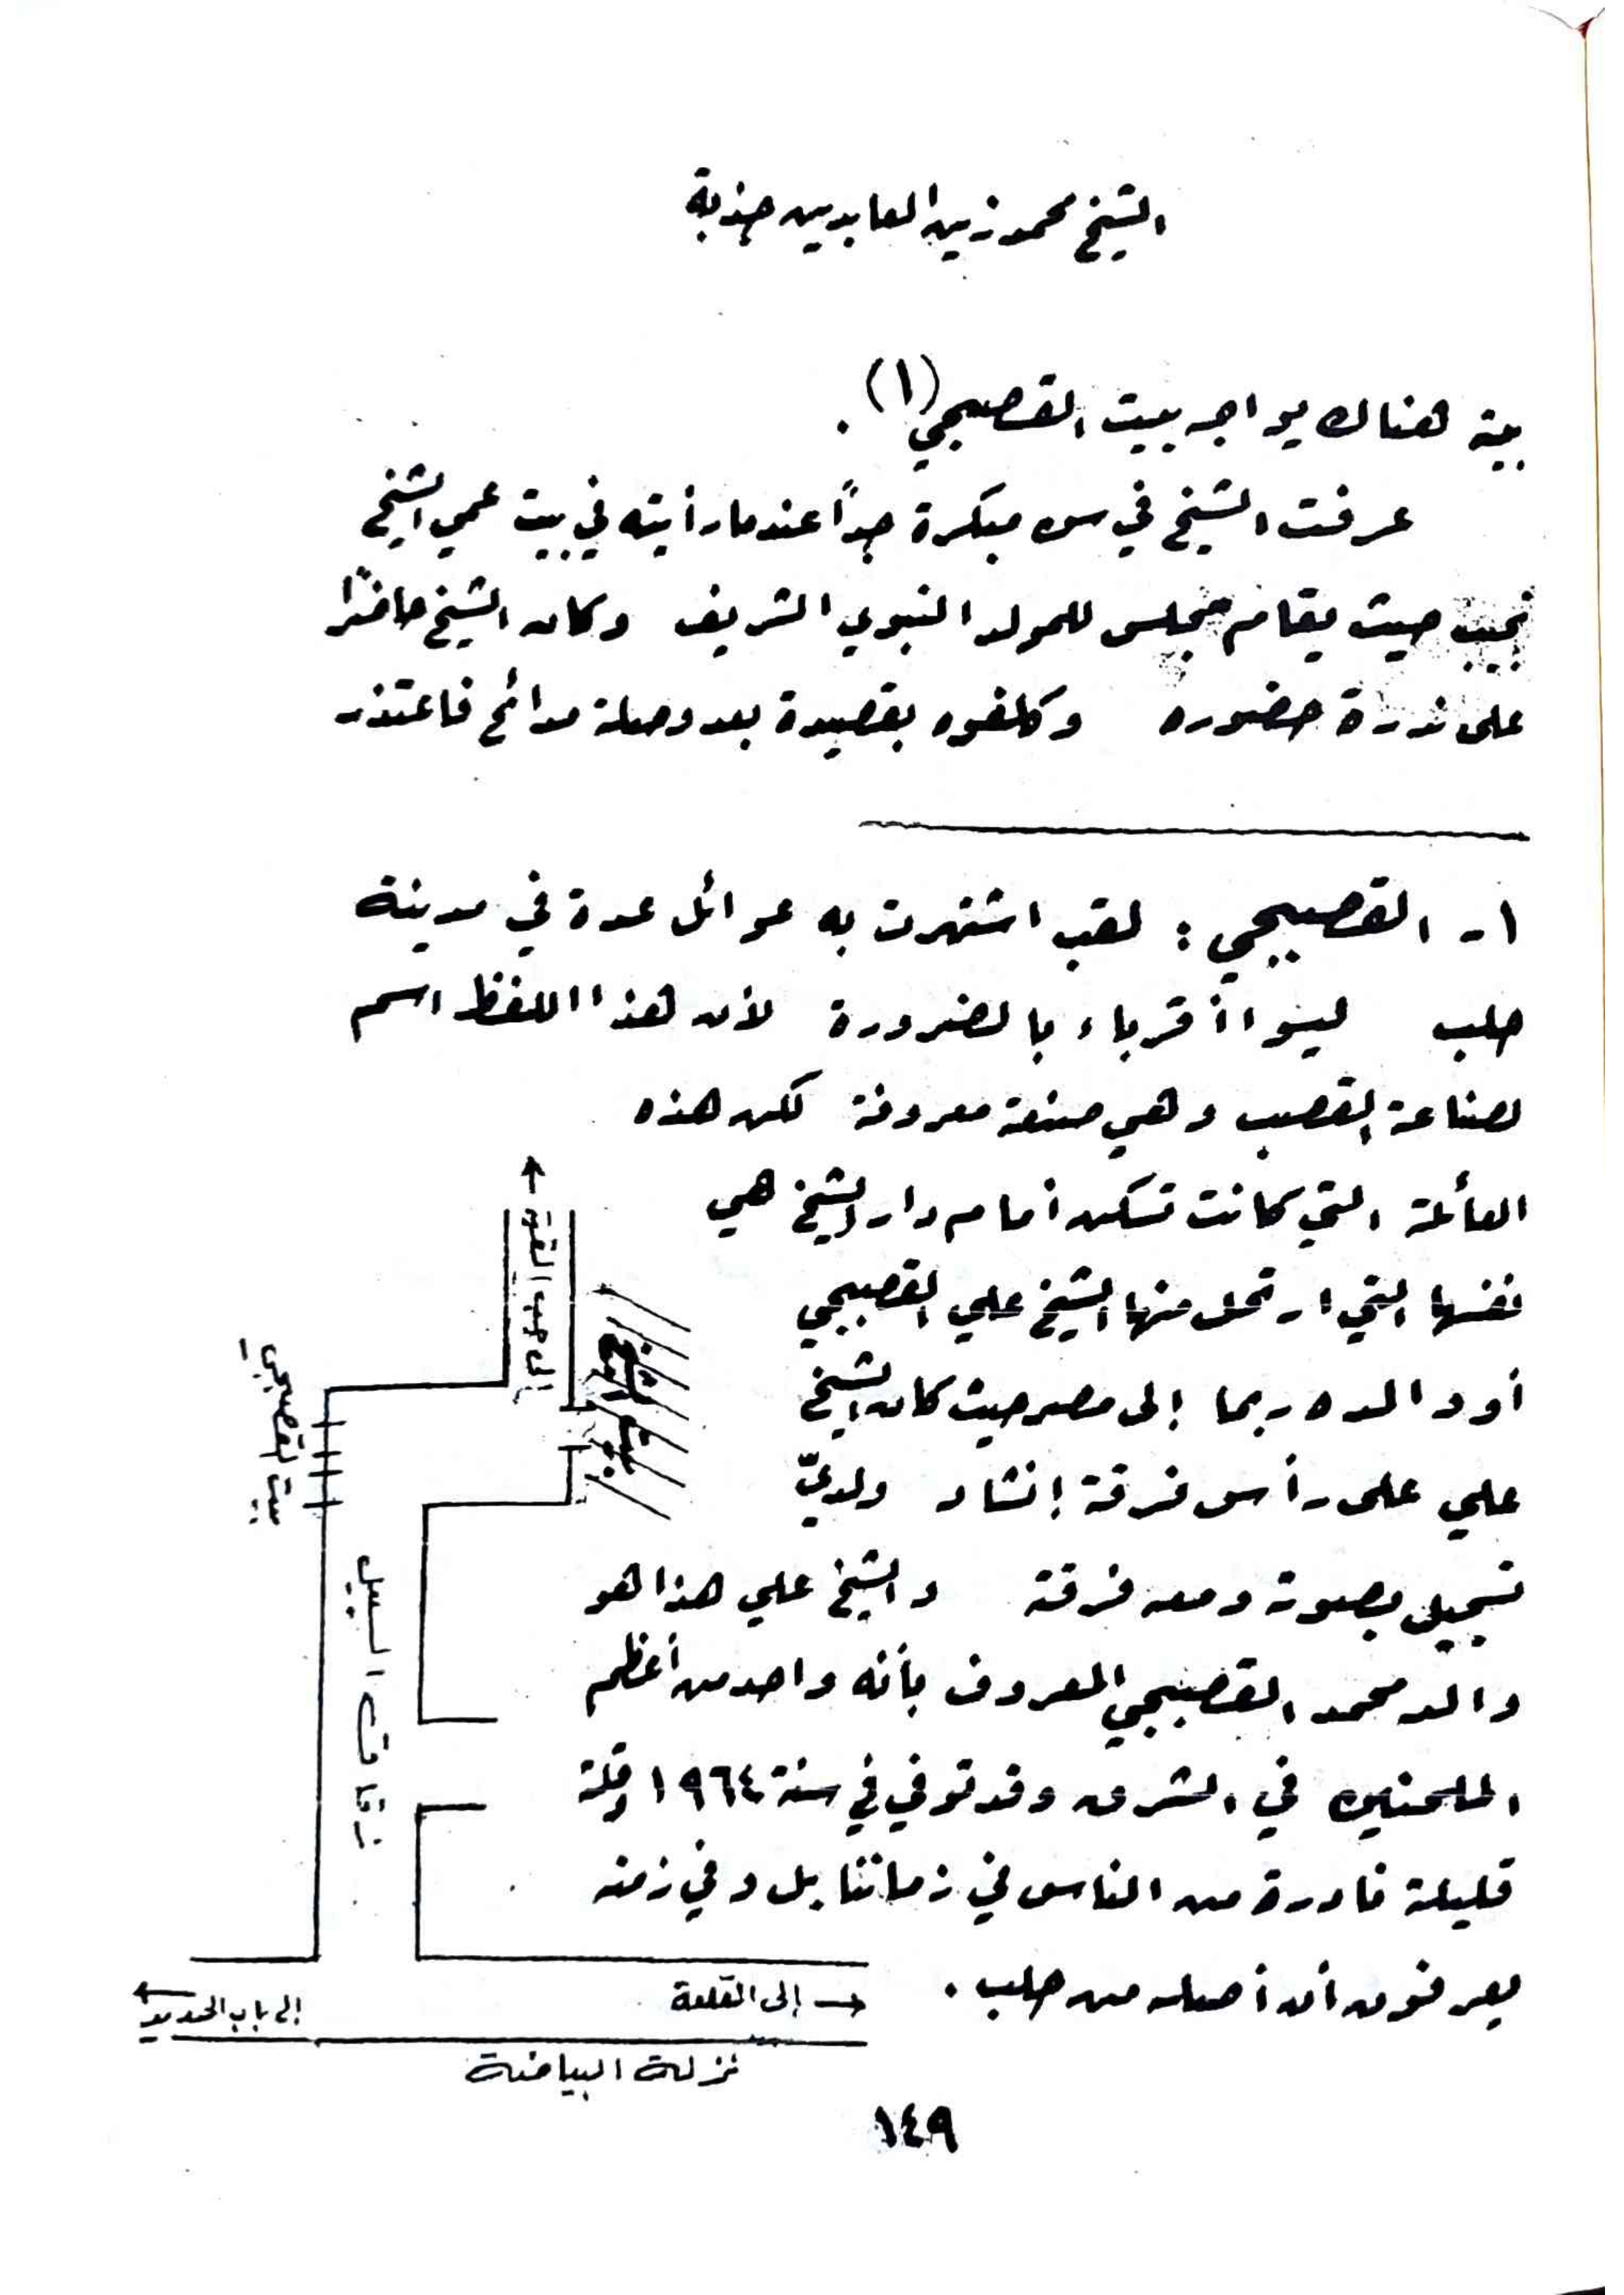 الشيخ محمد زين العابدين جذبة
بيته هناك يواجه بيت القصبجي (١).
عرفت الشيخ في سن مبكرة جداً عندما رأيته في بيت عمي الشيخ
نجيب حيث يقام مجلس للمولد النبوي الشريف وكان الشيخ حاضراً
على ندرة حضوره وكلفوه بقصيدة بعد وصلة مدائح فاعتذر
١- القصبجي : لقب اشتهرت به عوائل عدة في مدينة
حلب ليسوا أقرباء بالضرورة لأن هذا اللفظ اسم
لصناعة القصب وهي صنعة معروفة لكن هذه
العائلة التي كانت تسكن أمام دار الشيخ هي
نفسها التي ارتحل منها الشيخ علي القصبجي
أو والده ربما إلى مصر حيث كان الشيخ
علي على رأس فرقة إنشاد ولديّ
تسجيل بصوته ومعه فرقته والشيخ علي هذا هو
والد محمد القصبجي المعروف بأنه واحد من أعظم
الملحنين في الشرق وقد توفي في سنة ١٩٦٤ وقلة
قليلة نادرة من الناس في زماننا بل وفي زمنه
يعرفون أن أصله من حلب .
بيت القصبجي
زقاق السبيل
إلى القلعة
إلى باب الحديد
نزلة البياضة
١٤٩